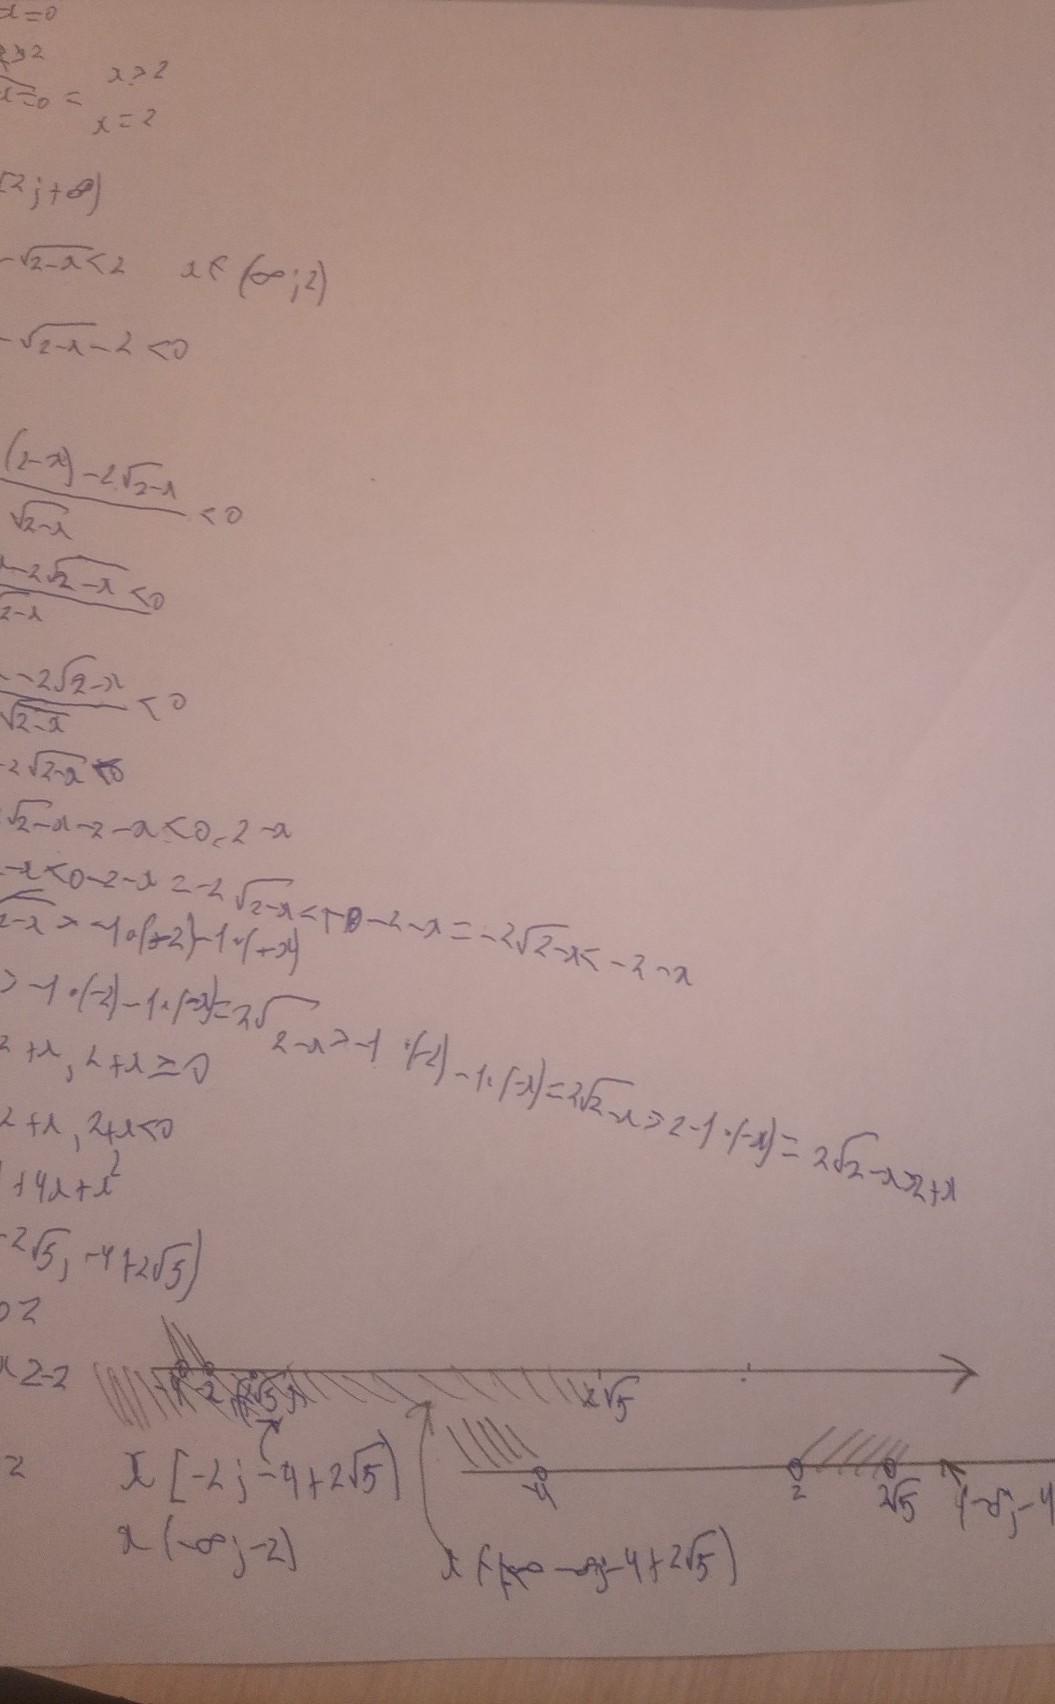 x=0
x>2
x=0 = x>2
x=2
[2;+∞)
-√2-x<2 x∈(∞;2)
-√2-x-2<0
(2-x)-2√2-x
√2-x <0
-2√2-x <0
√2-x
-2√2-x <0
√2-x
-2√2-x <0
√2-x-2-x<0, 2-x
-x<0-2-x=-2√2-x<+0-2-x=-2√2-x<-2-x
√2-x>-1·(+2)-1·(+x)
>-1·(-2)-1·(-x)=2√2-x>-1·(-2)-1·(-x)=2√2-x>2-1·(-x)=2√2-x>2+x
2+x, 2+x≥0
2+x, 2+x<0
+4x+x²
-2√5; -4+2√5)
x≥-2
-2 2√5
x [-2; -4+2√5)
-4 2 2√5 (-∞; -4
x (-∞;-2)
-∞;-4+2√5)